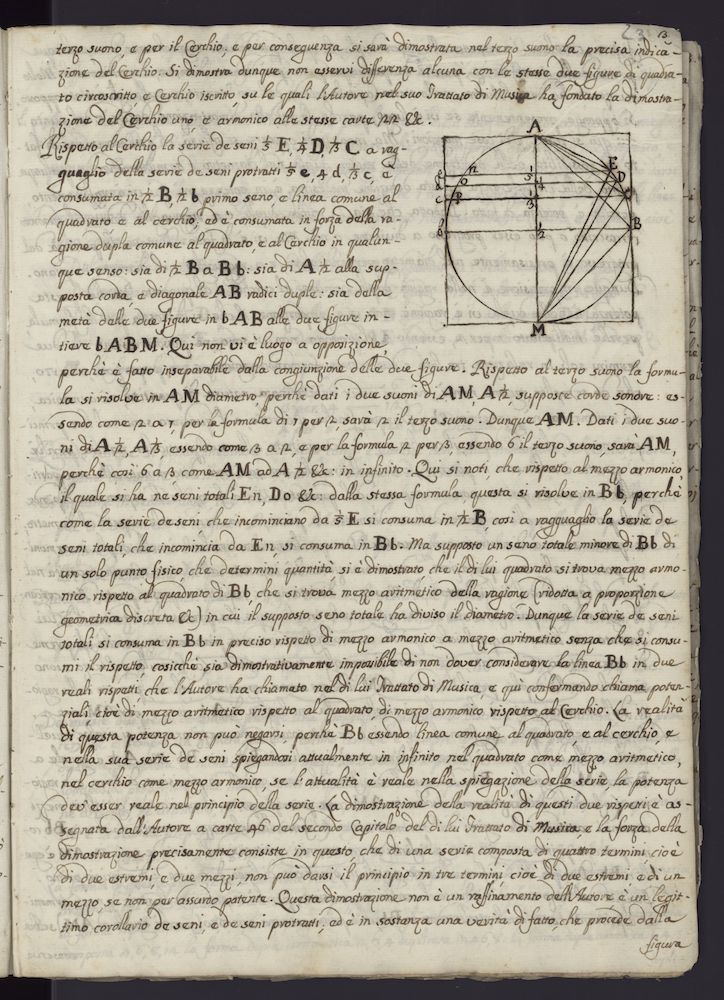 13
terzo suono, e per il Cerchio, e per conseguenza si sarà dimostrata nel terzo suono la precisa indica-
zione del Cerchio. Si dimostra dunque non esservi differenza alcuna con le stesse due figure di quadra-
to circoscritto e Cerchio iscritto, su le quali l'Autore nel suo Trattato di Musica ha fondato la dimostra-
zione del Cerchio uno, e armonico alle stesse carte 22 &c.
Rispetto al Cerchio la serie de seni ⅕ E, ¼ D, ⅓ C a rag-
guaglio della serie de seni protratti ⅕ e, ¼ d, ⅓ c, è
consumata in ½ B, ½ b primo seno, e linea comune al
quadrato e al cerchio, ed è consumata in forza della ra-
gione dupla comune al quadrato, e al Cerchio in qualun-
que senso: sia di ½ B a Bb: sia di A ½ alla sup-
posta corda, e diagonale AB radici duple: sia della
metà delle due figure in b AB alle due figure in-
tiere b ABM. Qui non vi è luogo a opposizione,
perchè è fatto inseparabile dalla congiunzione delle due figure. Rispetto al terzo suono la formu-
la si risolve in AM diametro, perchè dati i due suoni di AM, A ½, supposte corde sonore: es-
sendo come 2 a 1, per la formula di 1 per 2 sarà 2 il terzo suono. Dunque AM. Dati i due suo-
ni di A ½, A ⅓, essendo come 3 a 2, e per la formula 2 per 3, essendo 6 il terzo suono, sarà AM,
perchè così 6 a 3, come AM ad A ½ &c: in infinito. Qui si noti, che rispetto al mezzo armonico,
il quale si ha ne seni totali En, Do &c: dalla stessa formula questa si risolve in Bb, perchè
come la serie de seni, che incominciano da ⅕ E si consuma in ½ B, così a ragguaglio la serie de
seni totali, che incomincia da En, si consuma in Bb. Ma supposto un seno totale minore di Bb di
un solo punto fisico, che determini quantità si è dimostrato che il di lui quadrato si trova mezzo armo-
nico rispetto al quadrato di Bb che si trova mezzo aritmetico della ragione (ridotta a proporzione
geometrica discreta &c) in cui il supposto seno totale ha diviso il diametro. Dunque la serie de seni
totali si consuma in Bb in preciso rispetto di mezzo armonico a mezzo aritmetico senza che si consu-
mi il rispetto, cosicchè sia dimostrativamente impossibile di non dover considerare la linea Bb in due
reali rispetti, che l'Autore ha chiamato nel di lui Trattato di Musica, e quì confermando chiama poten-
ziali, cioè di mezzo aritmetico rispetto al quadrato, di mezzo armonico rispetto al Cerchio. La realità
di questa potenza non può negarsi perchè Bb essendo linea comune al quadrato e al cerchio, e
nella sua serie de seni spiegandosi attualmente in infinito nel quadrato come mezzo aritmetico,
nel cerchio come mezzo armonico, se l'attualità è reale nella spiegazione della serie, la potenza
dev'esser reale nel principio della serie. La dimostrazione della realità di questi due rispetti, è as-
segnata dall'Autore a carte 46 del secondo Capitolo del di lui Trattato di Musica, e la forza della
dimostrazione precisamente consiste in questo che di una serie composta di quattro termini cioè
di due estremi e due mezzi, non può darsi il principio in tre termini cioè di due estremi e di un
mezzo, se non per assurdo patente. Questa dimostrazione non è un raffinamento dell'Autore è un legit-
timo corollario de seni, e de seni protratti, ed è in sostanza una verità di fatto, che procede dalla
figura
A
E
D
C
B
M
n
o
p
e
d
c
b
⅕
¼
⅓
½